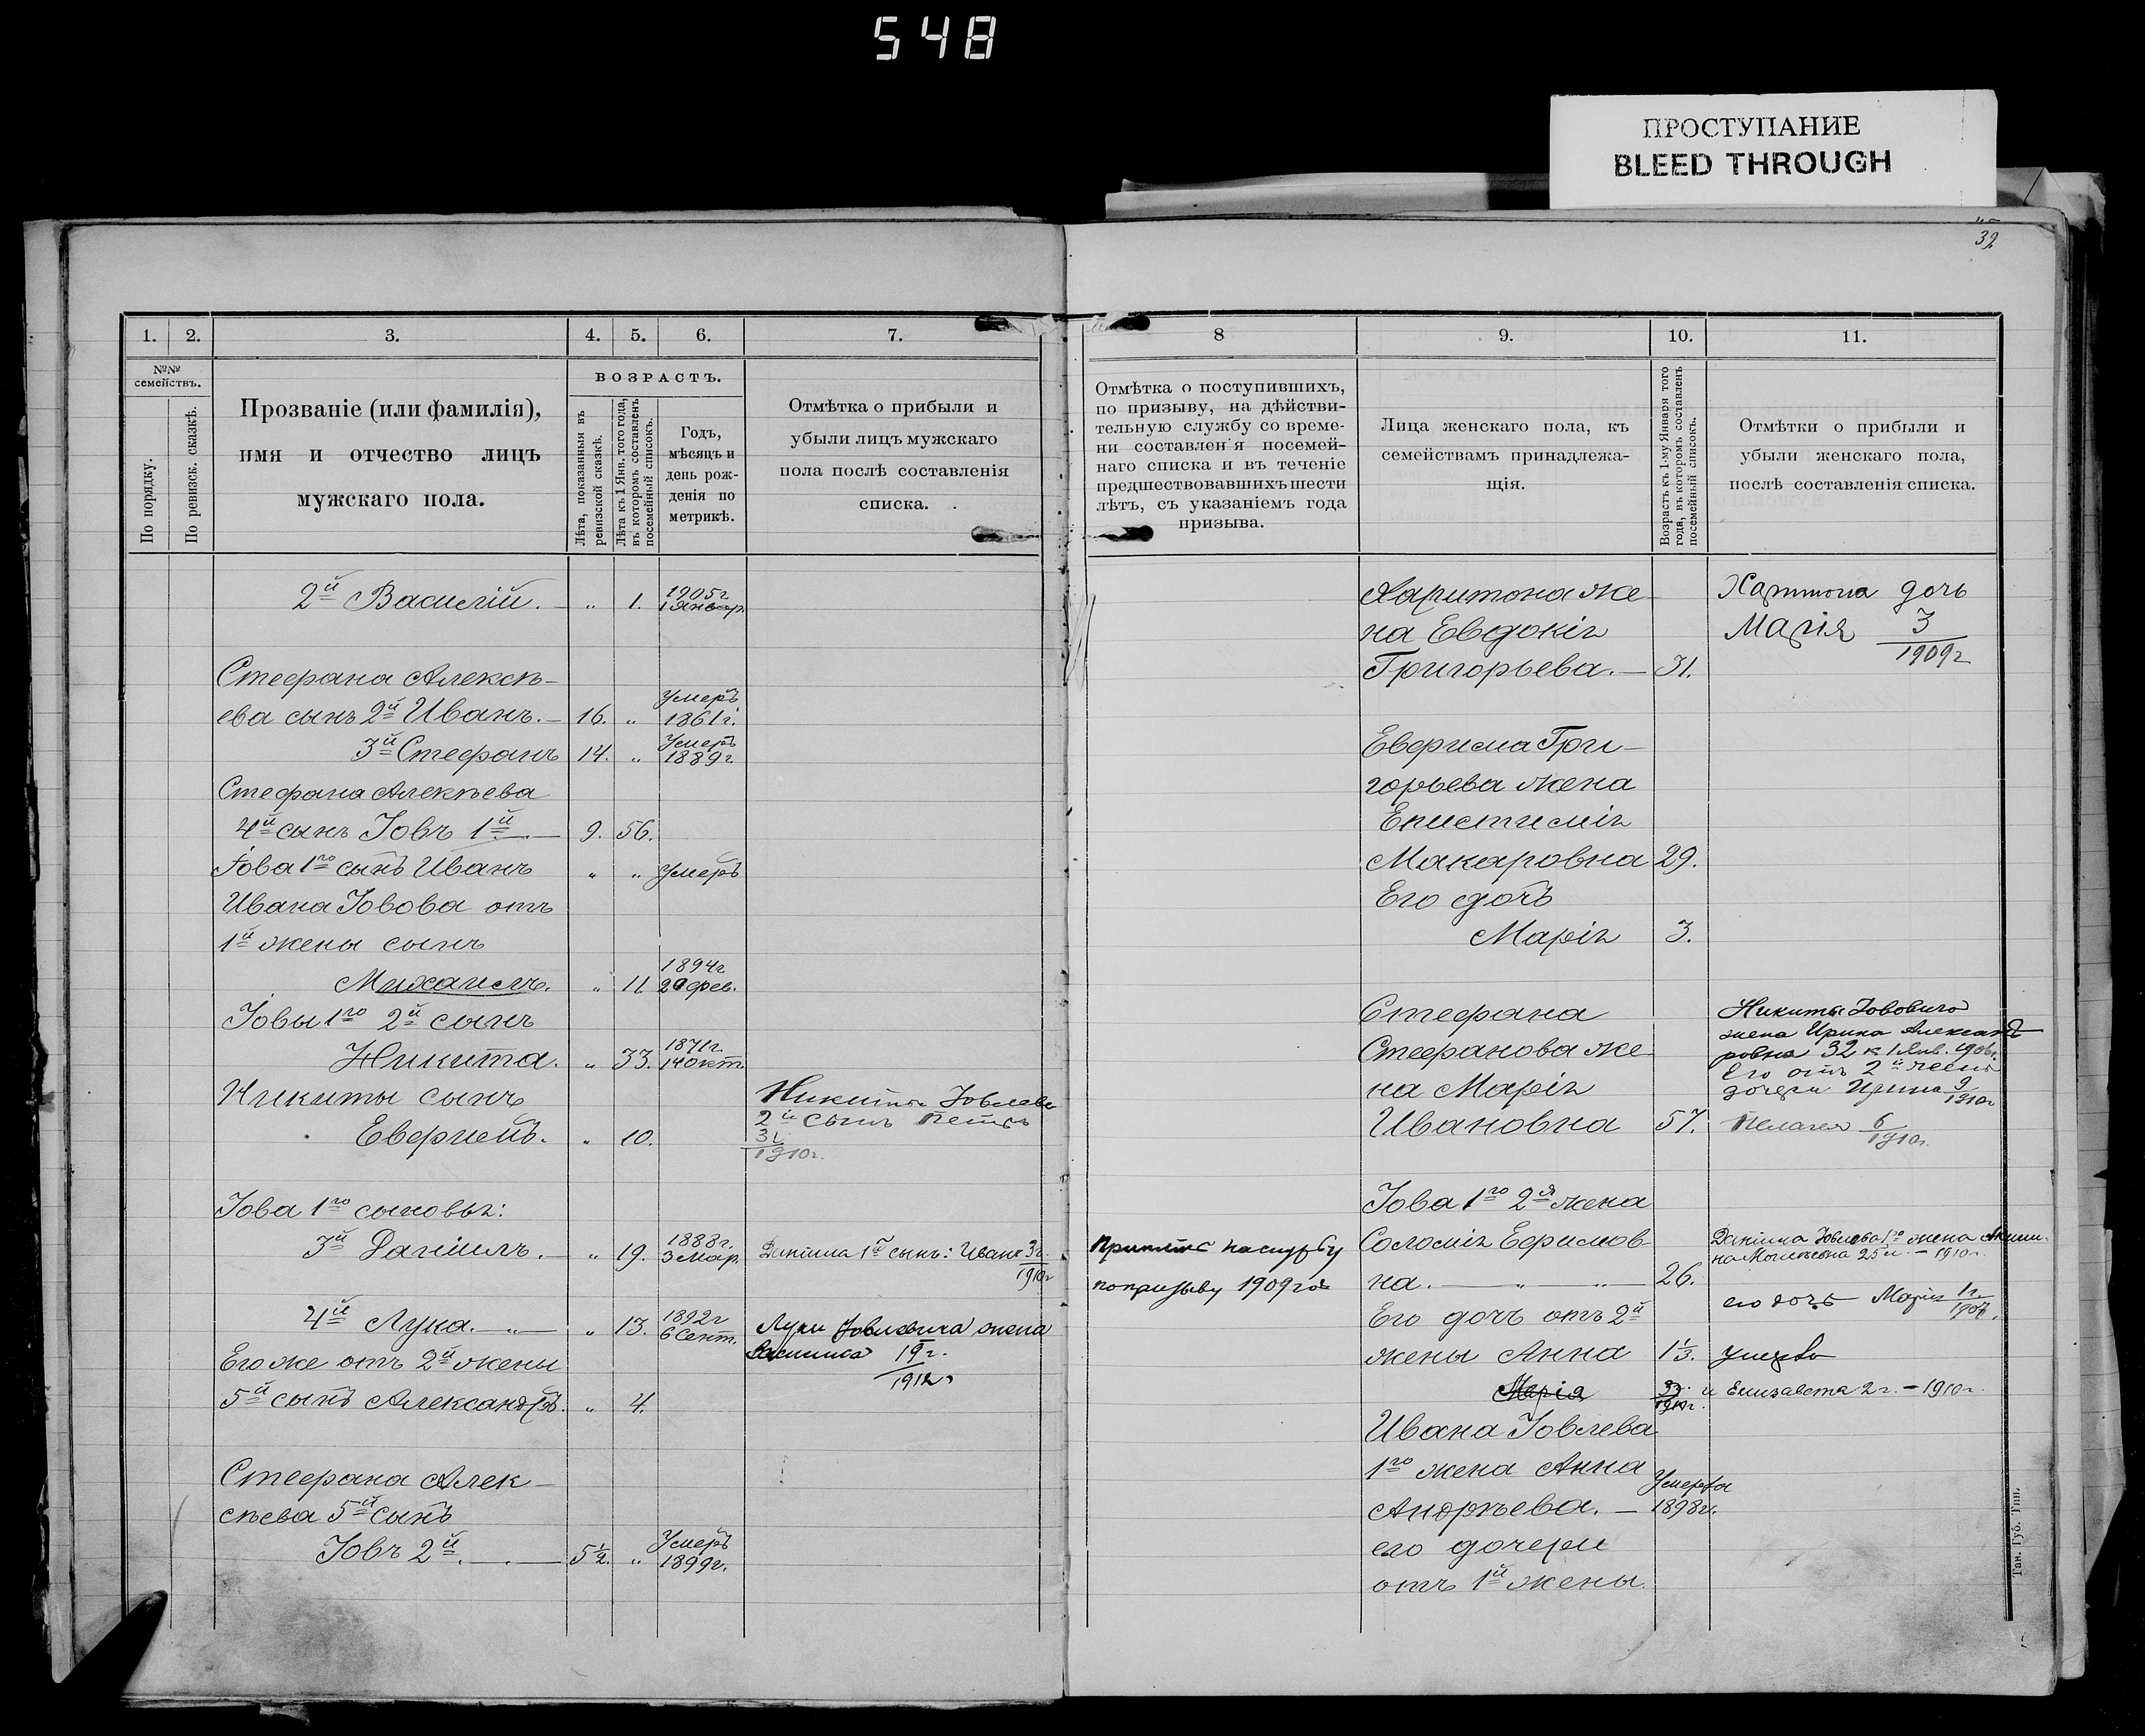 548
ПРОСТУПАНИЕ
BLEED THROUGH
32
1. 2. 3. 4. 5. 6. 7.
№№ семействъ.
По порядку.
По ревизск. сказкѣ.
Прозваніе (или фамилія),
имя и отчество лицъ
мужскаго пола.
ВОЗРАСТЪ.
Лѣта, показанныя въ
ревизской сказкѣ.
Лѣта къ 1 Янв. того года,
въ которомъ составленъ
посемейный списокъ.
Годъ,
мѣсяцъ и
день рож-
денія по
метрикѣ.
Отмѣтка о прибыли и
убыли лицъ мужскаго
пола послѣ составленія
списка.
2й Василій. — „ 1. 1905г 1 Январ.
Стефана Алексѣ-
ева сынъ 2й Иванъ. — 16. „ Умеръ 1861г.
3й Стефанъ 14. „ Умеръ 1889г
Стефана Алексѣева
4й сынъ Іовъ 1й — 9. 56.
Іова 1го сынъ Иванъ „ „ Умеръ
Ивана Іовова отъ
1й жены сынъ
Михаилъ. „ 11. 1894г 20 фев.
Іовы 1го 2й сынъ
Никита. „ 33. 1871г. 14 Окт.
Никиты сынъ
Евфримъ. „ 10.
Никиты Іовлева
2й сынъ Петръ
1910г.
Іова 1го сыновья:
3й Даніилъ. — „ 19. 1888г. 3 Мар. Даніила 1й сынъ: Иванъ 3г. 1910г
4й Лука. — „ — „ 13. 1892г 6 Сент. Луки Іовлевича жена
19г.
1912г
Его же отъ 2й жены
5й сынъ Александръ. „ 4.
Стефана Алек-
сѣева 5й сынъ
Іовъ 2й. — . — 5½. „ Умеръ 1899г.
8 9. 10. 11.
Отмѣтка о поступившихъ,
по призыву, на дѣйстви-
тельную службу со време-
ни составленія посемей-
наго списка и въ теченіе
предшествовавшихъ шести
лѣтъ, съ указаніемъ года
призыва.
Лица женскаго пола, къ
семействамъ принадлежа-
щія.
Возрастъ къ 1-му Января того
года, въ которомъ составленъ
посемейный списокъ.
Отмѣтки о прибыли и
убыли женскаго пола,
послѣ составленія списка.
Харитона же-
на Евдокія
Григорьева. — 31.
Харитона дочь
Марія 3
1909г
Евфима Гри-
горьева жена
Епистимія
Макаровна 29.
Его дочь
Марія 3.
Стефана
Стефанова же-
на Марія
Ивановна 57.
Никиты Іововича
жена Ирина Александ-
ровна 32 к 1 Янв. 1906г.
Его отъ 2й жены
дочери Ирина 9
1910г
Пелагея 6
1910г.
Іова 1го 2я жена
Соломія Ефимов-
на. — „ — „ — 26.
Принятъ на службу
по призыву 1909 года
Даніила Іовлева 1го жена
25 л. — 1910г.
его дочь Марія 1г.
1907.
Его дочь отъ 2й
жены Анна 1⅓. умерла
Марія 1910г. и Елизавета 2г. — 1910г.
Ивана Іовлева
1го жена Анна
Андреева. — Умерла 1898г.
его дочери
отъ 1й жены.
Там. Губ. Тип.